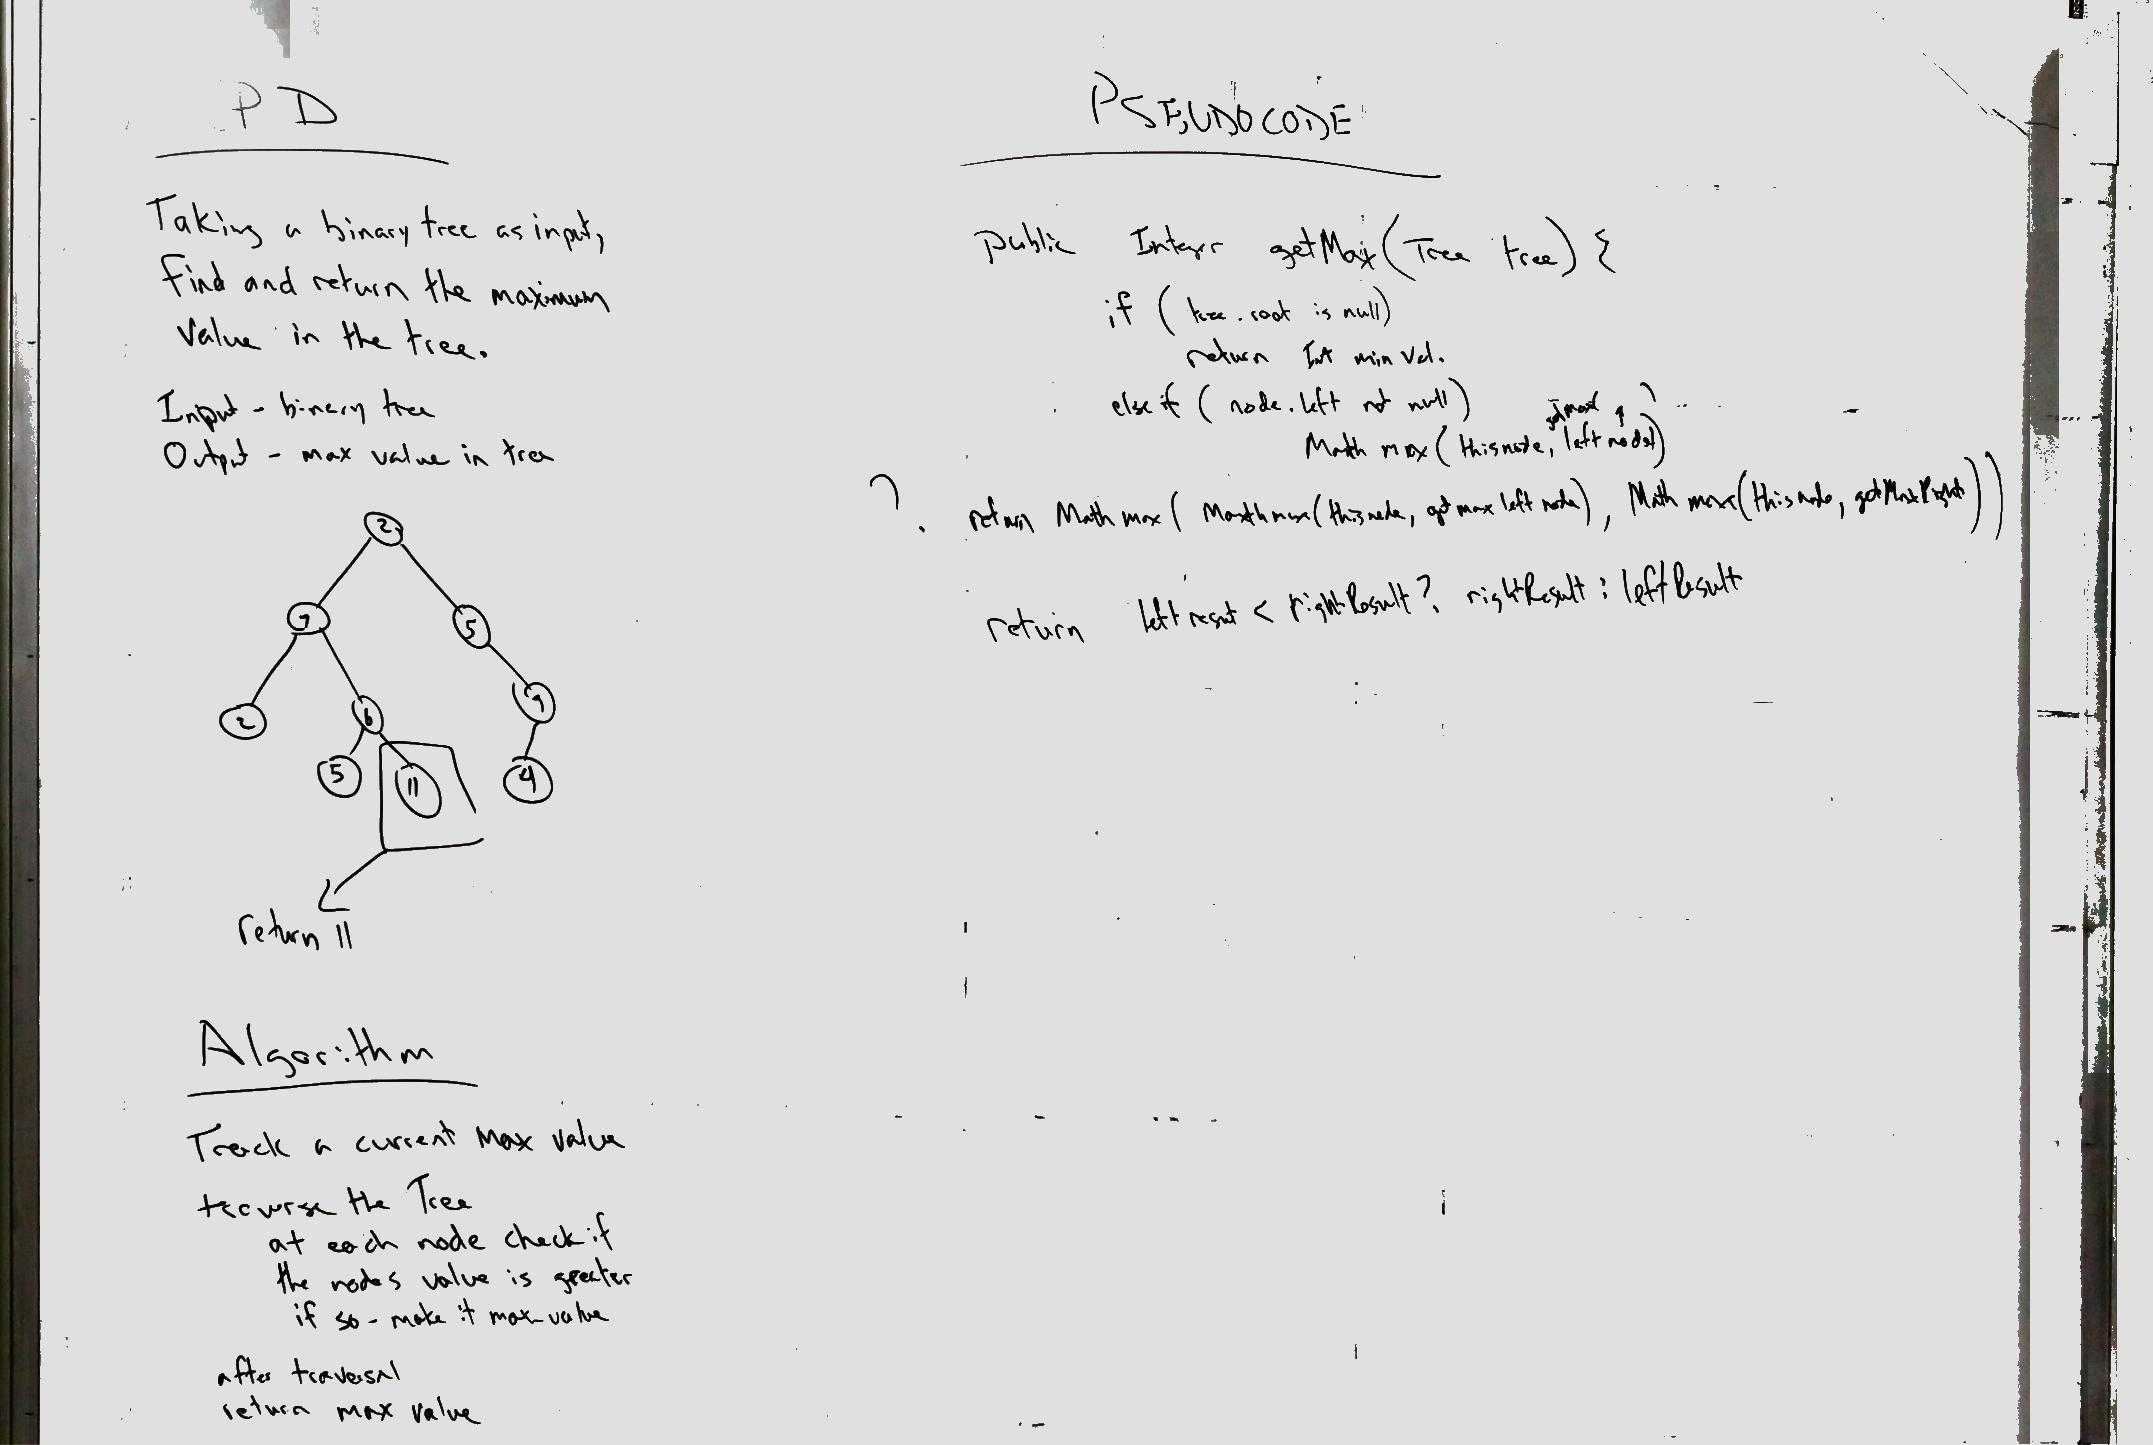 PD
Taking a binary tree as input,
find and return the maximum
value in the tree.
Input - binary tree
Output - max value in tree
2
7 5
2 6 9
5 11 4
return 11
Algorithm
Track a current max value
traverse the Tree
at each node check if
the nodes value is greater
if so - make it max value
after traversal
return max value
PSEUDOCODE
public Integer getMax(Tree tree) {
if (tree.root is null)
return Int min val.
else if (node.left not null)
getmax
Math max(this node, left node)
? return Math max( Math max(this node, get max left node), Math max(this node, getMaxRight))
return left result < rightResult ? rightResult : leftResult